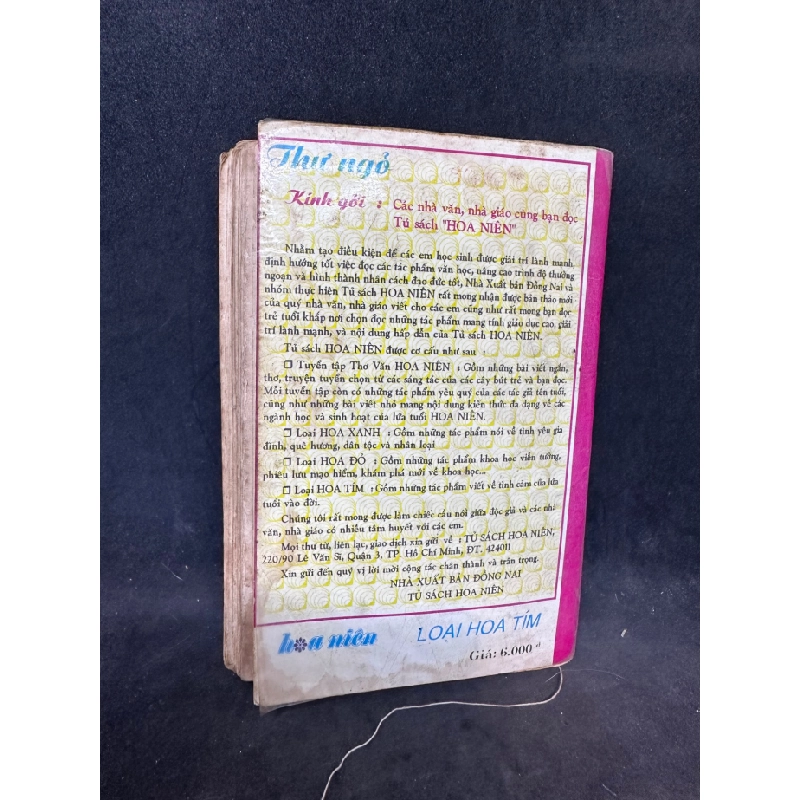 Thư ngỏ
Kính gởi : Các nhà văn, nhà giáo cùng bạn đọc
Tủ sách "HOA NIÊN"
Nhằm tạo điều kiện để các em học sinh được giải trí lành mạnh
định hướng tốt việc đọc các tác phẩm văn học, nâng cao trình độ thưởng
ngoạn và hình thành nhân cách đạo đức tốt, Nhà Xuất bản Đồng Nai và
nhóm thực hiện Tủ sách HOA NIÊN rất mong nhận được bản thảo mới
của quý nhà văn, nhà giáo viết cho các em cũng như rất mong bạn đọc
trẻ tuổi khắp nơi chọn đọc những tác phẩm mang tính giáo dục cao, giải
trí lành mạnh, và nội dung hấp dẫn của Tủ sách HOA NIÊN.
Tủ sách HOA NIÊN được cơ cấu như sau
❒ Tuyển tập Thơ Văn HOA NIÊN : Gồm những bài viết ngắn,
thơ, truyện tuyển chọn từ các sáng tác của các cây bút trẻ và bạn đọc.
Mỗi tuyển tập còn có những tác phẩm yêu quý của các tác giả tên tuổi,
cũng như những bài viết nhỏ mang nội dung kiến thức đa dạng về các
ngành học và sinh hoạt của lứa tuổi HOA NIÊN.
❒ Loại HOA XANH : Gồm những tác phẩm nói về tình yêu gia
đình, quê hương, dân tộc và nhân loại
❒ Loại HOA ĐỎ : Gồm những tác phẩm khoa học viễn tưởng,
phiêu lưu mạo hiểm, khám phá mới về khoa học...
❒ Loại HOA TÍM : Gồm những tác phẩm viết về tình cảm của lứa
tuổi vào đời.
Chúng tôi rất mong được làm chiếc cầu nối giữa độc giả và các nhà
văn, nhà giáo có nhiều tâm huyết với các em.
Mọi thư từ, liên lạc, giao dịch xin gửi về : TỦ SÁCH HOA NIÊN,
220/90 Lê Văn Sĩ, Quận 3, TP. Hồ Chí Minh, ĐT. 424011
Xin gửi đến quý vị lời mời cộng tác chân thành và trân trọng.
NHÀ XUẤT BẢN ĐỒNG NAI
TỦ SÁCH HOA NIÊN
hoa niên
LOẠI HOA TÍM
Giá: 6.000đ